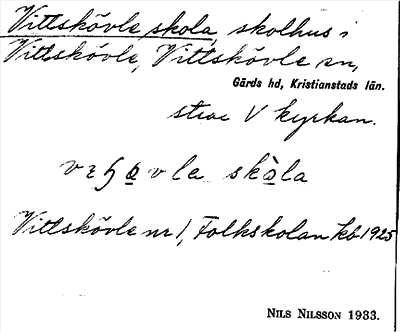 Vittskövle skola, skolhus i
Vittskövle, Vittskövle sn,
Gärds hd, Kristianstads län.
strax V kyrkan.
skòla
Vittskövle nr 1, Folkskolan kb 1925
NILS NILSSON 1933.